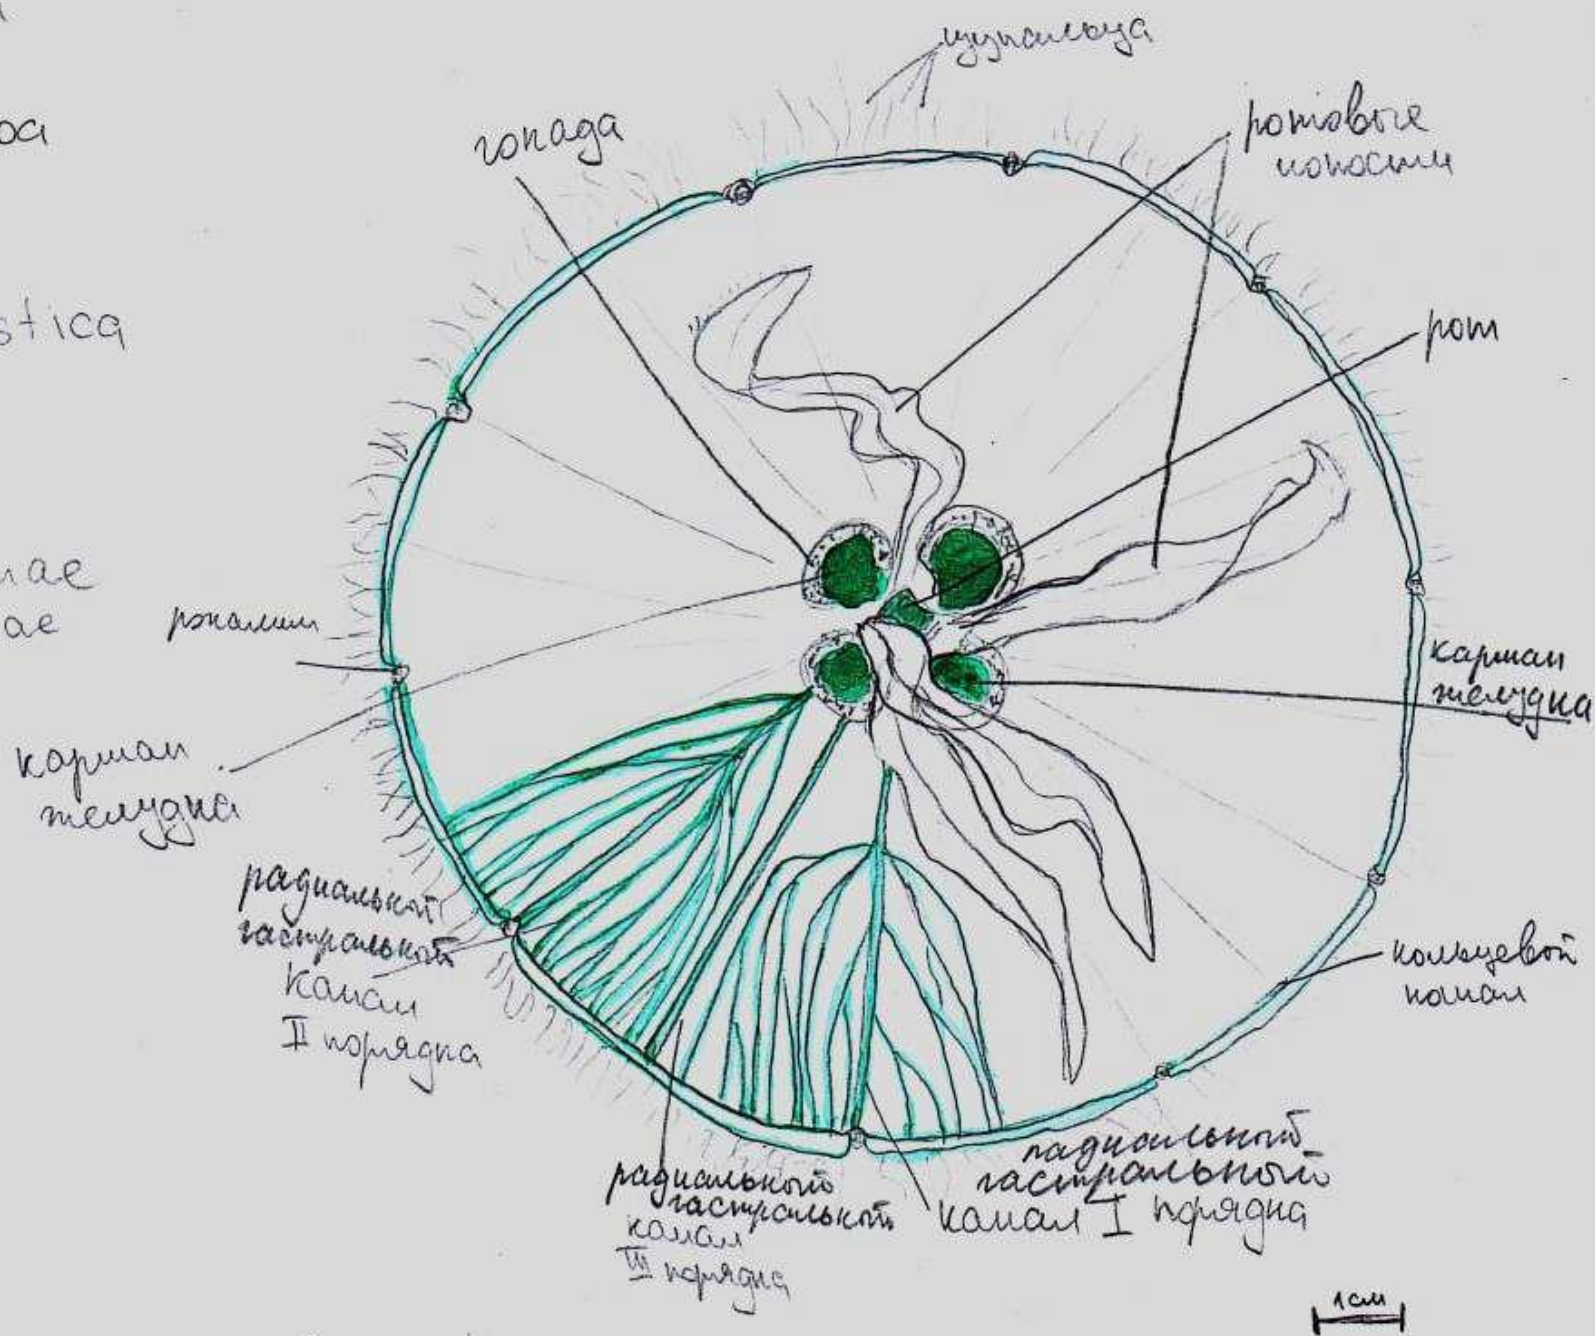 щупальца
ротовые
лопасти
гонада
рот
stica
ропалии
карман
желудка
карман
желудка
радиальный
гастральный
канал
II порядка
кольцевой
канал
радиальный
гастральный
канал I порядка
радиальный
гастральный
канал
III порядка
1 см